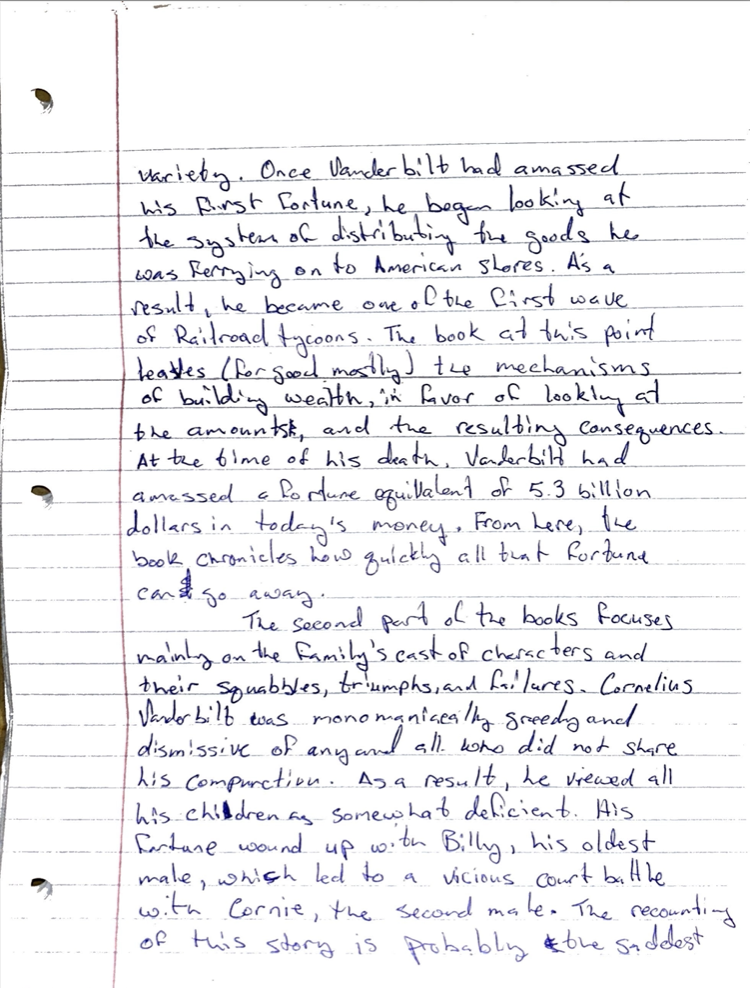 variety. Once Vanderbilt had amassed
his first fortune, he began looking at
the system of distributing the goods he
was ferrying on to American shores. As a
result, he became one of the first wave
of Railroad tycoons. The book at this point
leaves (for good mostly) the mechanisms
of building wealth, in favor of looking at
the amounts, and the resulting consequences.
At the time of his death, Vanderbilt had
amassed a fortune equivalent of 5.3 billion
dollars in today's money. From here, the
book chronicles how quickly all that fortune
can go away.
The second part of the books focuses
mainly on the family's cast of characters and
their squabbles, triumphs, and failures. Cornelius
Vanderbilt was monomaniacally greedy and
dismissive of any and all who did not share
his compunction. As a result, he viewed all
his children as somewhat deficient. His
fortune wound up with Billy, his oldest
male, which led to a vicious court battle
with Cornie, the second male. The recounting
of this story is probably the saddest